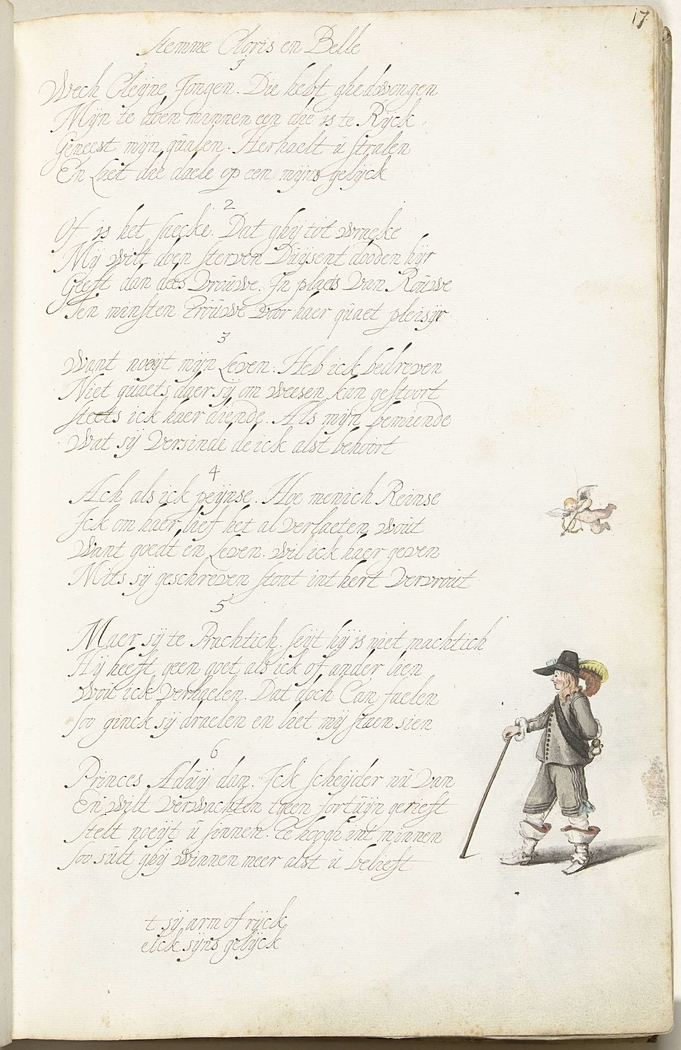 17
Stemme Cloris en Belle
1
Wech Cleijne Jongen. Die hebt ghedwongen
Mijn te doen minnen een die is te Rijck
Geneest mijn qualen. Herhaelt u stralen
En Laet die daele op een mijns gelijck
2
Of is het saecke. Dat ghij tot wraeke
Mij wilt doen sterven Duijsent dooden hijr
Geeft dan dees Vrouwe. In plaets van Rouwe
Ten minsten Trouwe voor haer quaet plesijr
3
Want noeijt mijn Leven. Heb ick bedreven
Niet quaets daer sij om weesen kan gestoort
steets ick haer diende. Als mijn beminde
Wat sij versinde de ick alst behoort
4
Ach als ick peijnse. Hoe menich Reinse
Ick om haer lief het al verlaeten wout
Want goedt en Leven. wil ick haer geven
Mits sij geschreven stont int hert vervrout
5
Maer sij te Prachtich. seijt hij is niet machtich
Hij heeft geen goet als ick of ander lien
Wou ick verhaelen. Dat doch Can faelen
soo ginck sij draelen en liet mij staen sien
6
Princes Aduij dan. Ick scheijder nu van
En wilt verwachten tgeen fortuijn gerieft
stelt noeijt u sinnen. Te hoogh int minnen
soo sult ghij winnen meer alst u belieft
t sij arm of rijck
elck sijns gelijck